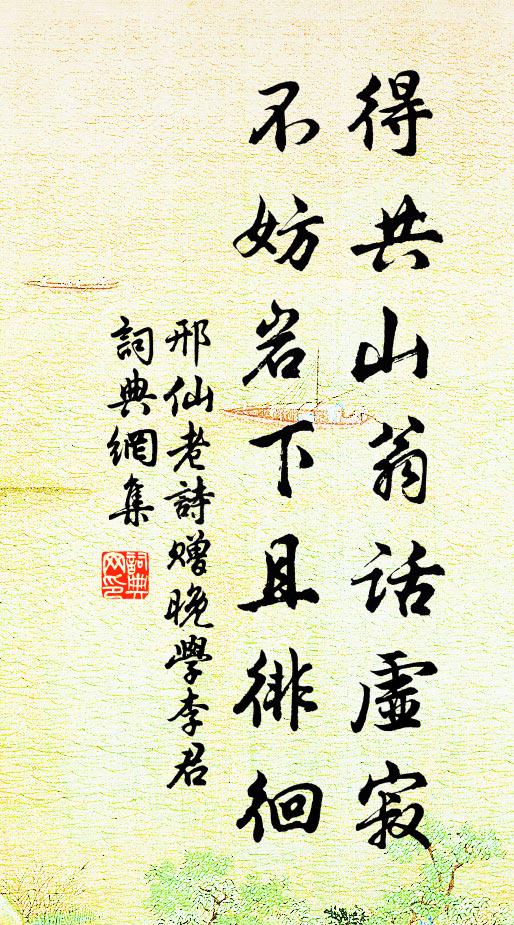 得共山翁话虚寂
不妨岩下且徘徊
邢仙老詩赠晚學李君
詞典網集
詞典网印